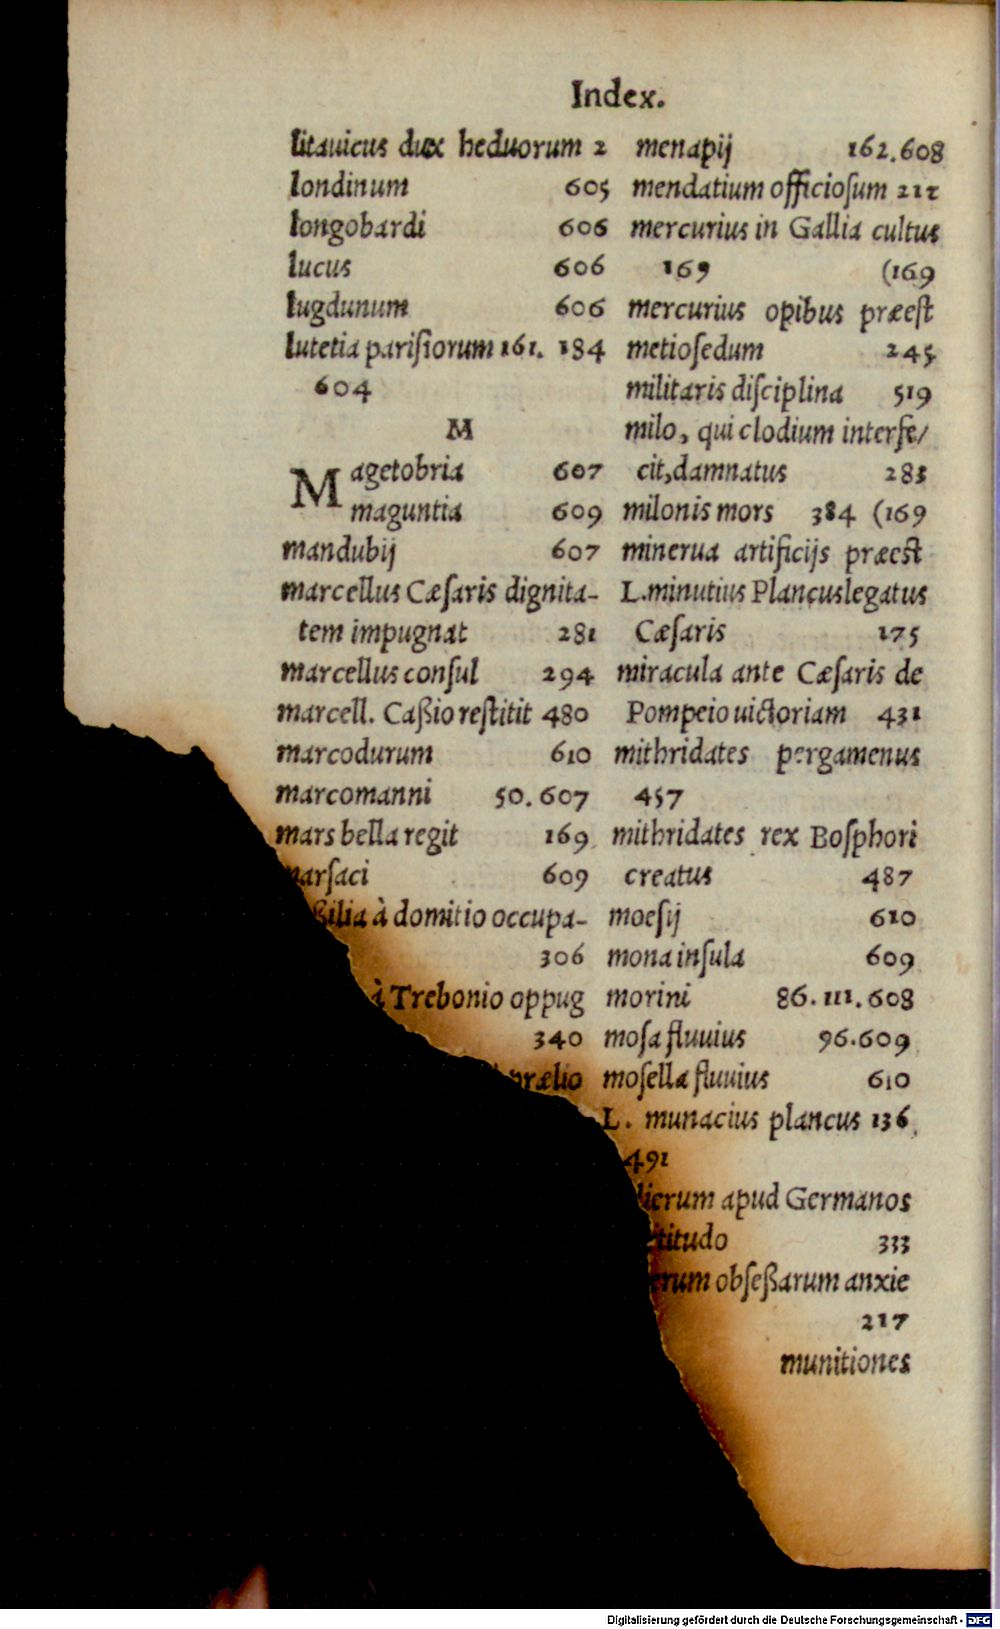 Index.
litauicus dux heduorum 2
londinum 605
longobardi 606
lucus 606
lugdunum 606
lutetia parisiorum 161. 184
604
M
Magetobria 607
maguntia 609
mandubij 607
marcellus Cæsaris dignita-
tem impugnat 281
marcellus consul 294
marcell. Caßio restitit 480
marcodurum 610
marcomanni 50.607
mars bella regit 169
marsaci 609
ßilia à domitio occupa-
306
à Trebonio oppug
340
prælio
menapij 162.608
mendatium officiosum 212
mercurius in Gallia cultus
169 (169
mercurius opibus præest
metiosedum 245
militaris disciplina 519
milo, qui clodium interfe/
cit, damnatus 283
milonis mors 384 (169
minerua artificijs præest
L.minutius Plancus legatus
Cæsaris 175
miracula ante Cæsaris de
Pompeio uictoriam 431
mithridates pergamenus
457
mithridates rex Bosphori
creatus 487
moesij 610
mona insula 609
morini 86.111.608
mosa fluuius 96.609
mosella fluuius 610
L. munacius plancus 136
491
lierum apud Germanos
titudo 333
erum obseßarum anxie
217
munitiones
Digitalisierung gefördert durch die Deutsche Forschungsgemeinschaft - DFG